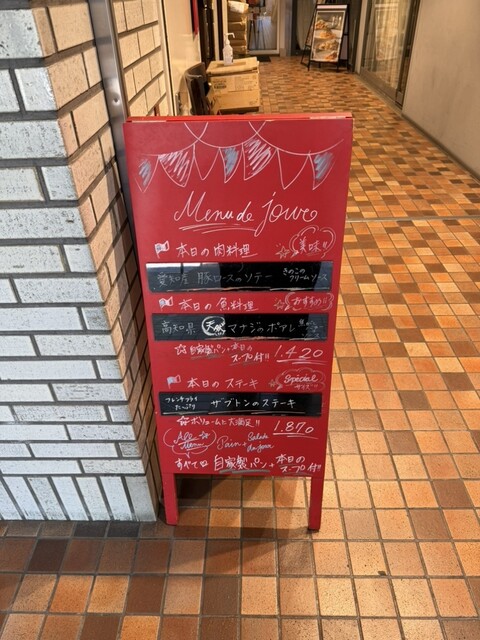 Menu de jour
本日の肉料理 美味!!
愛知産 豚ロースのソテー きのこのクリームソース
本日の魚料理 おすすめ!!
高知県 天然 マナジのポアレ
自家製パン+本日のスープ付!! 1.420
本日のステーキ Special
フレンチフライたっぷり ザブトンのステーキ
ボリューム 大満足!! 1.870
Pain + Salade du jour
すべて 自家製パン+本日のスープ付!!